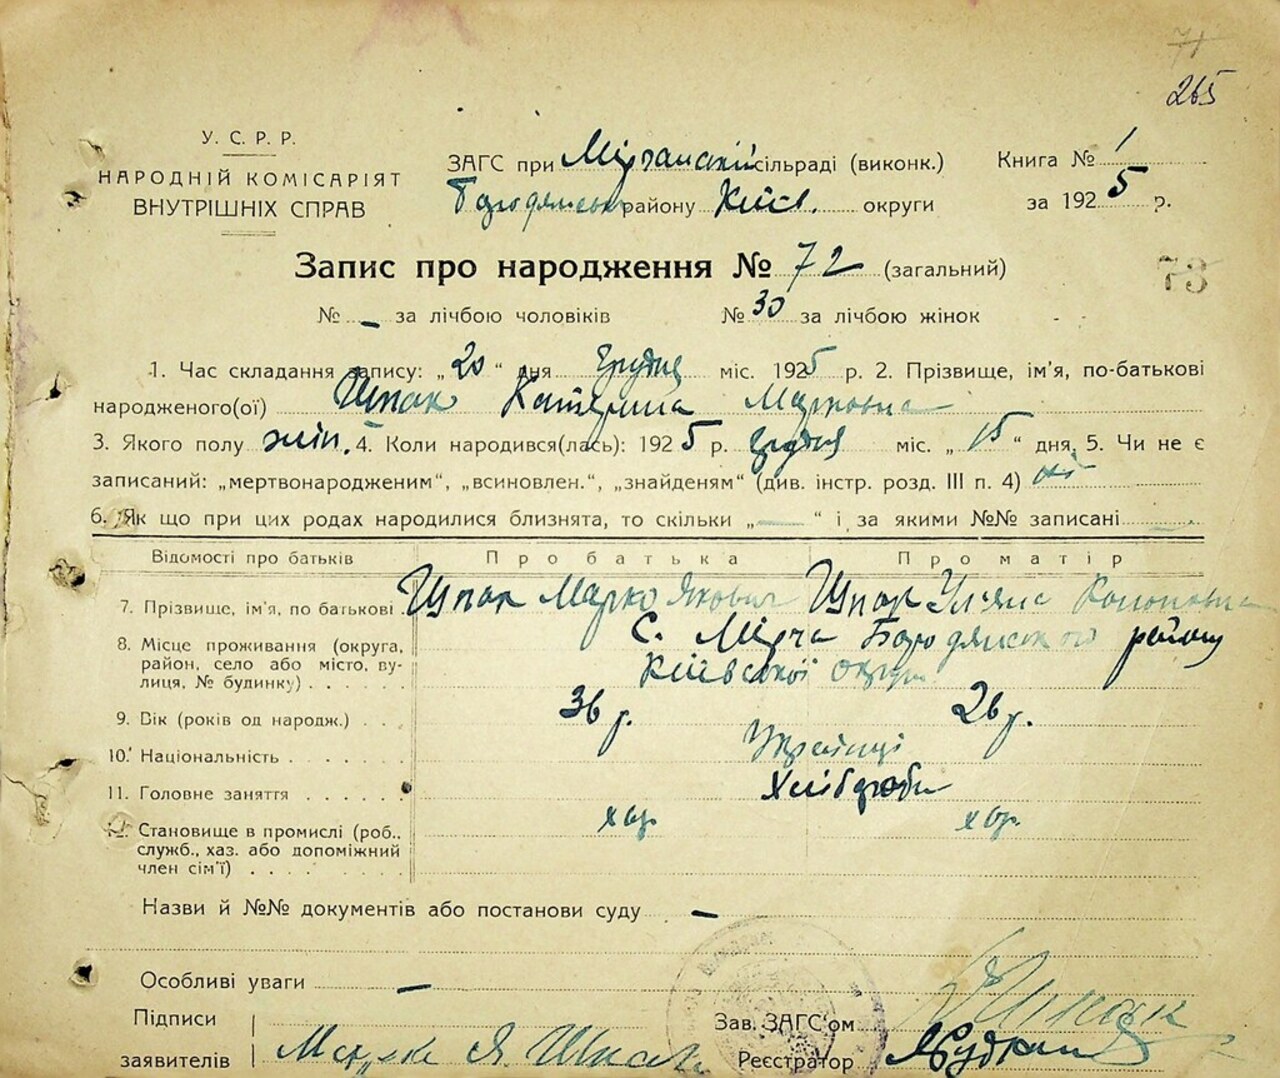 71
265
У. С. Р. Р.
НАРОДНІЙ КОМІСАРІЯТ
ВНУТРІШНІХ СПРАВ
ЗАГС при Мірчанській сільраді (виконк.)
Бородянськ району Київ. округи
Книга № 1
за 1925 р.
Запис про народження № 72 (загальний)
67
№ – за лічбою чоловіків № 30 за лічбою жінок
1. Час складання запису: „20“ дня грудня міс. 1925 р. 2. Прізвище, ім'я, по-батькові
народженого(ої) Шпак Катерина Марковна
3. Якого полу жін. 4. Коли народився(лась): 1925 р. грудня міс. „15“ дня, 5. Чи не є
записаний: „мертвонародженим“, „всиновлен.“, „знайденям“ (див. інстр. розд. III п. 4) ні
6. Як що при цих родах народилися близнята, то скільки „—“ і за якими №№ записані —
Відомості про батьків Про батька Про матір
7. Прізвище, ім'я, по батькові Шпак Марко Якович Шпак Уляна Кононовна
8. Місце проживання (округа, район, село або місто, вулиця, № будинку) с. Мірча Бородянського району
Київської округи
9. Вік (років од народж.) 36 р. 26 р.
10. Національність Українці
11. Головне заняття Хлібороби
12. Становище в промислі (роб., служб., хаз. або допоміжний член сім'ї) хаз. хаз.
Назви й №№ документів або постанови суду –
Особливі уваги –
Підписи
заявителів Марко Я. Шпак
Зав. ЗАГС'ом Шпак
Реєстратор